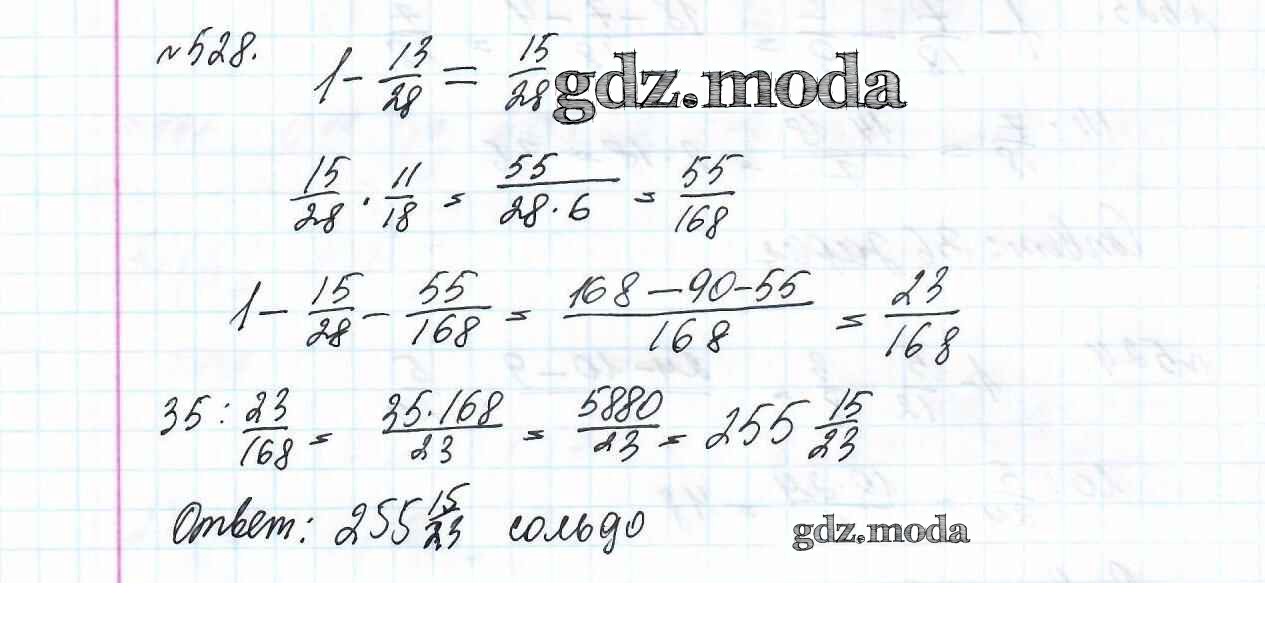 №528. 1 - 13/28 = 15/28 gdz.moda
15/28 · 11/18 = 55/28·6 = 55/168
1 - 15/28 - 55/168 = 168-90-55/168 = 23/168
35 : 23/168 = 35·168/23 = 5880/23 = 255 15/23
Ответ: 255 15/23 сольдо gdz.moda